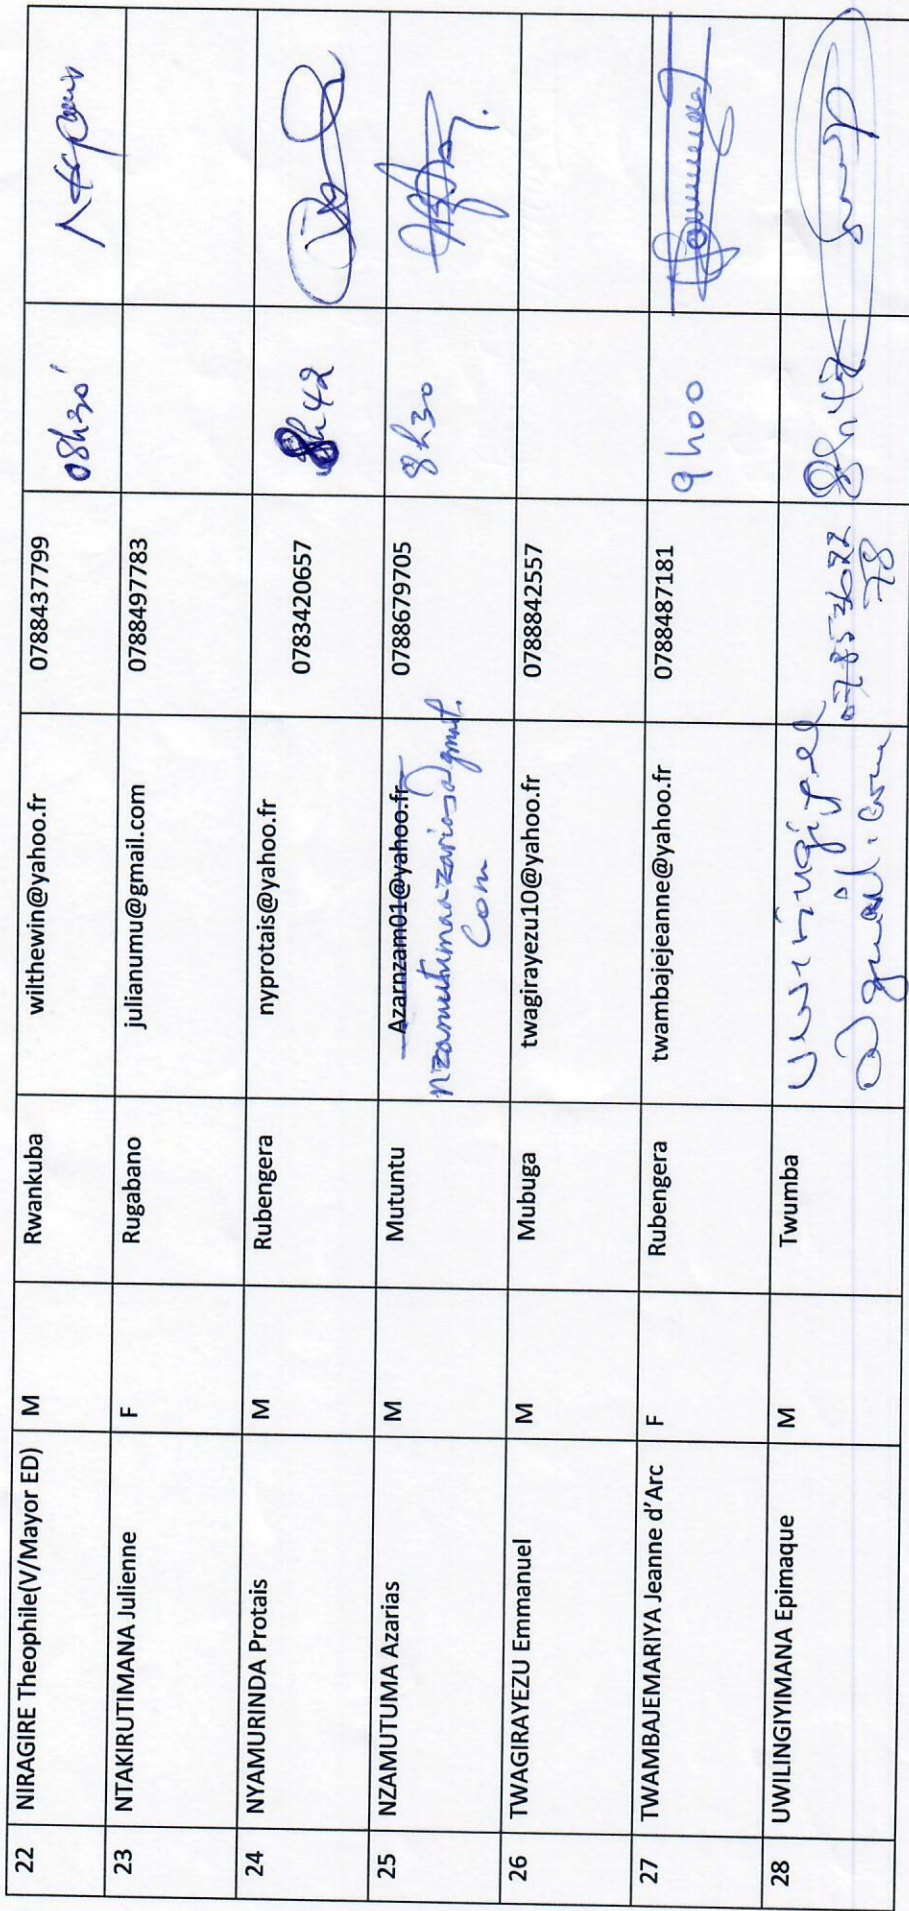 22 NIRAGIRE Theophile(V/Mayor ED) M Rwankuba wilthewin@yahoo.fr 0788437799 08h30'
23 NTAKIRUTIMANA Julienne F Rugabano julianumu@gmail.com 0788497783
24 NYAMURINDA Protais M Rubengera nyprotais@yahoo.fr 0783420657 8h42
25 NZAMUTUMA Azarias M Mutuntu Azarnzam01@yahoo.fr 0788679705 8h30
nzamutumaazarias@gmail.
com
26 TWAGIRAYEZU Emmanuel M Mubuga twagirayezu10@yahoo.fr 0788842557
27 TWAMBAJEMARIYA Jeanne d'Arc F Rubengera twambajejeanne@yahoo.fr 0788487181 9h00
28 UWILINGIYIMANA Epimaque M Twumba
@gmail.com 78